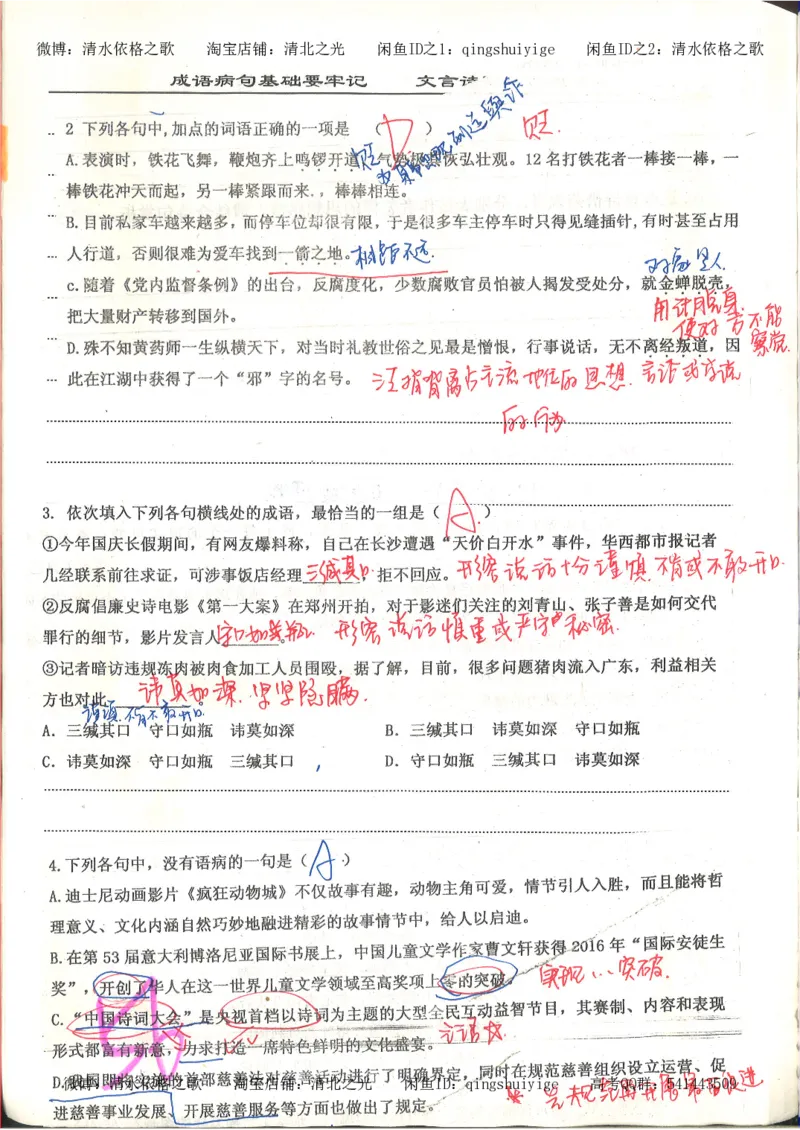 微博：清水依格之歌 淘宝店铺：清北之光 闲鱼ID之1：qingshuiyige 闲鱼ID之2：清水依格之歌
成语病句基础要牢记 文言诗
2 下列各句中,加点的词语正确的一项是 （ D ）
贬
A.表演时，铁花飞舞，鞭炮齐上鸣锣开道，气势极其恢弘壮观。12名打铁花者一棒接一棒，一
棒铁花冲天而起，另一棒紧跟而来．，棒棒相连。
B.目前私家车越来越多，而停车位却很有限，于是很多车主停车时只得见缝插针,有时甚至占用
人行道，否则很难为爱车找到一箭之地。相距不远.
c.随着《党内监督条例》的出台，反腐度化，少数腐败官员怕被人揭发受处分，就金蝉脱壳，
把大量财产转移到国外。
用计脱身
使对方不能
察觉
D.殊不知黄药师一生纵横天下，对当时礼教世俗之见最是憎恨，行事说话，无不离经叛道，因
此在江湖中获得了一个“邪”字的名号。
泛指背离占主流地位的思想.言论或学说
的行为
3. 依次填入下列各句横线处的成语，最恰当的一组是（ A ）
①今年国庆长假期间，有网友爆料称，自己在长沙遭遇“天价白开水”事件，华西都市报记者
几经联系前往求证，可涉事饭店经理三缄其口，拒不回应。形容说话十分谨慎.不肯或不敢开口.
②反腐倡廉史诗电影《第一大案》在郑州开拍，对于影迷们关注的刘青山、张子善是如何交代
罪行的细节，影片发言人守口如瓶。形容说话慎重或严守秘密.
③记者暗访违规冻肉被肉食加工人员围殴，据了解，目前，很多问题猪肉流入广东，利益相关
方也对此讳莫如深.坚坚隐瞒.
谨慎.不肯不敢开口.
A．三缄其口 守口如瓶 讳莫如深 B．三缄其口 讳莫如深 守口如瓶
C．讳莫如深 守口如瓶 三缄其口 D．守口如瓶 三缄其口 讳莫如深
4.下列各句中，没有语病的一句是（ A ）
A.迪士尼动画影片《疯狂动物城》不仅故事有趣，动物主角可爱，情节引人入胜，而且能将哲
理意义、文化内涵自然巧妙地融进精彩的故事情节中，给人以启迪。
B.在第53届意大利博洛尼亚国际书展上，中国儿童文学作家曹文轩获得2016年“国际安徒生
奖”，开创了华人在这一世界儿童文学领域至高奖项上零的突破。实现…突破.
C.“中国诗词大会”是央视首档以诗词为主题的大型全民互动益智节目，其赛制、内容和表现
形式都富有新意，力求打造一席特色鲜明的文化盛宴。
D.我国即将实施的首部慈善法对慈善活动进行了明确界定，同时在规范慈善组织设立运营、促
微博：清水依格之歌 淘宝店铺：清北之光 闲鱼ID：qingshuiyige 高考QQ群：541443509
进慈善事业发展、开展慈善服务等方面也做出了规定。